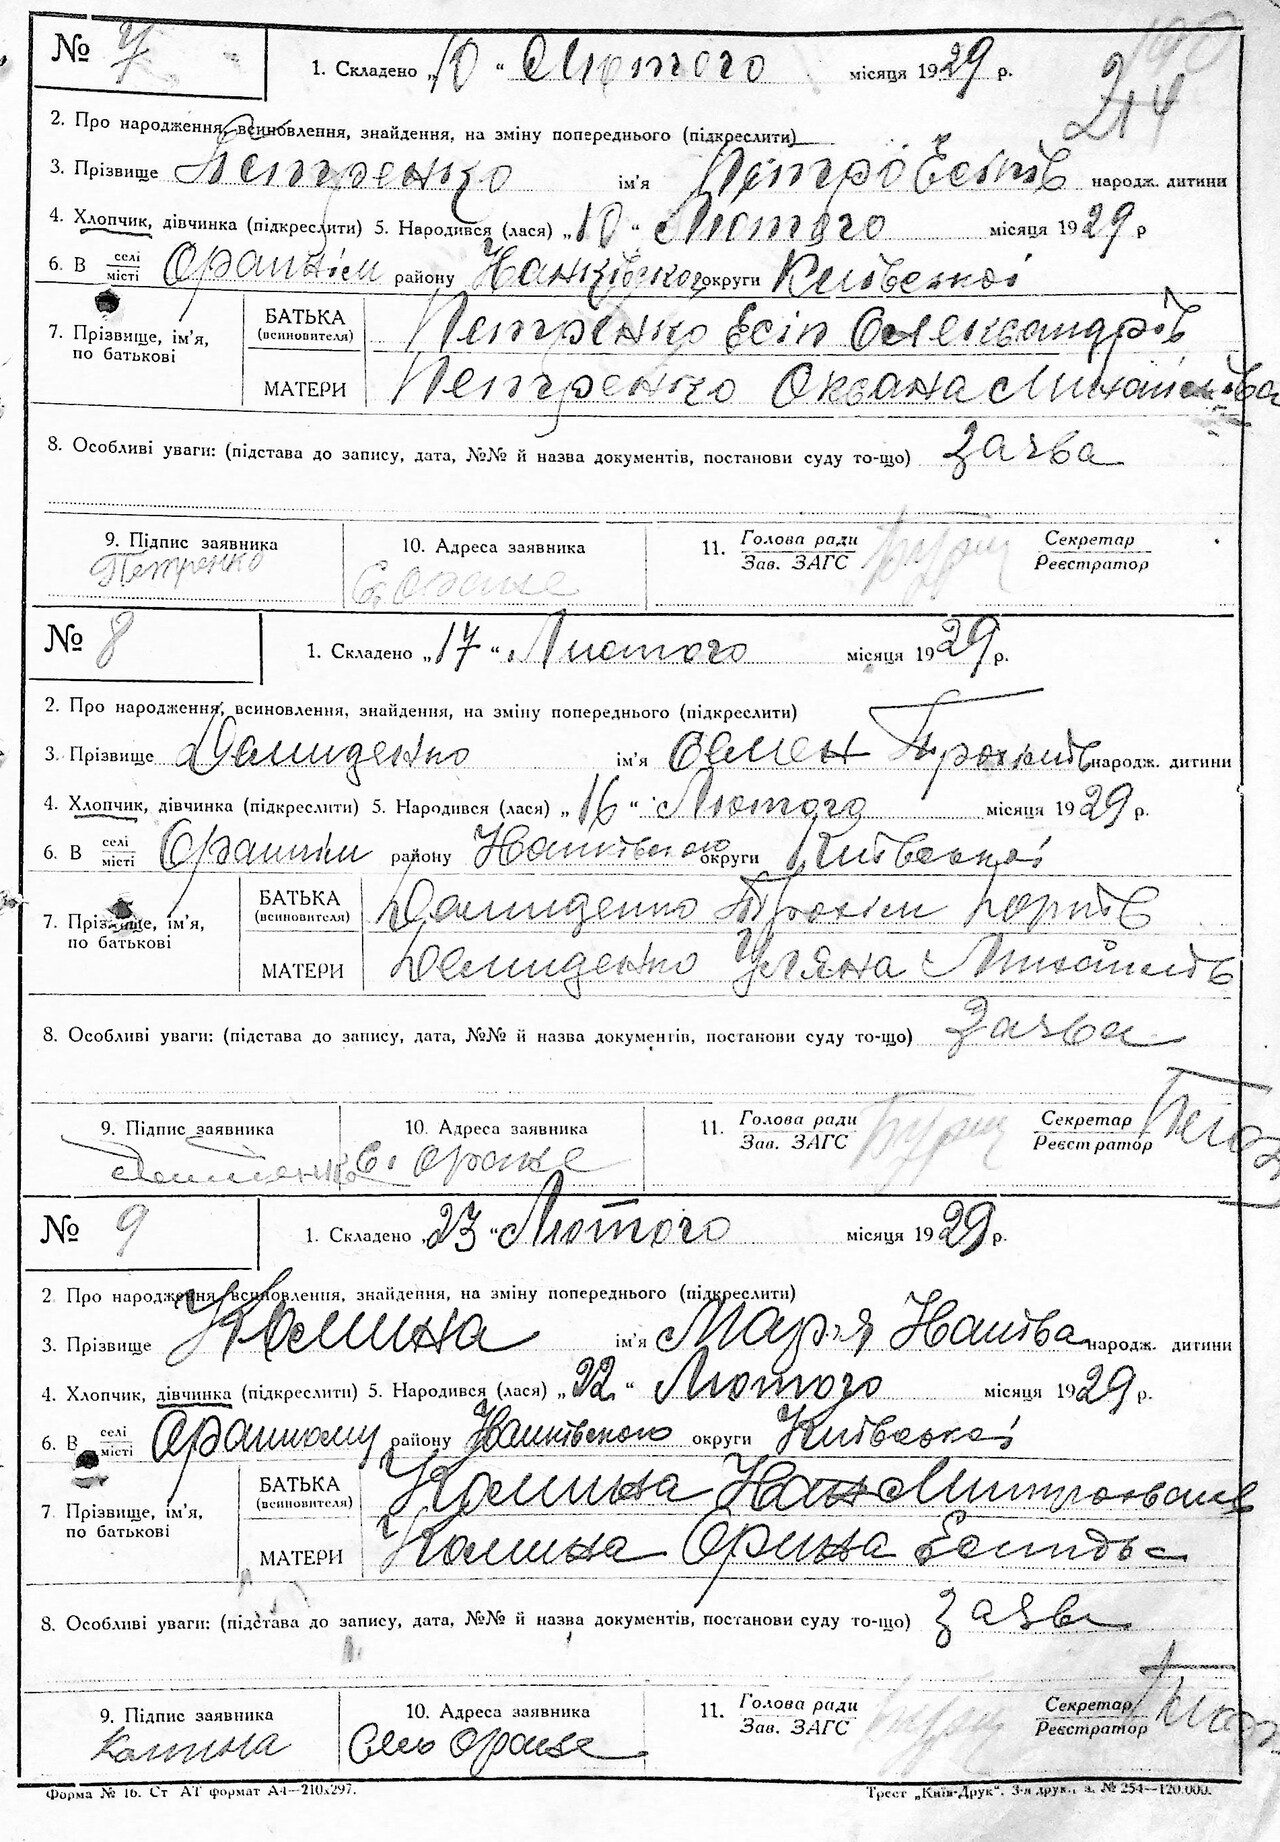 № 7 1. Складено „10“ Лютого місяця 1929 р.
244
2. Про народження, всиновлення, знайдення, на зміну попереднього (підкреслити)
3. Прізвище Петренко ім'я Петро Есіпів народж. дитини
4. Хлопчик, дівчинка (підкреслити) 5. Народився (лася) „10“ Лютого місяця 1929 р
6. В селі місті Ораннім району округи Київської
7. Прізвище, ім'я, по батькові БАТЬКА (всиновителя) Петренко Есіп Олександрів
МАТЕРИ Петренко Оксана Михайлівна
8. Особливі уваги: (підстава до запису, дата, №№ й назва документів, постанови суду то-що) Заява
9. Підпис заявника 10. Адреса заявника 11. Голова ради Зав. ЗАГС Секретар Реєстратор
Петренко С. Оране
№ 8 1. Складено „17“ Лютого місяця 1929 р.
2. Про народження, всиновлення, знайдення, на зміну попереднього (підкреслити)
3. Прізвище Демиденко ім'я Семен народж. дитини
4. Хлопчик, дівчинка (підкреслити) 5. Народився (лася) „16“ Лютого місяця 1929 р.
6. В селі місті Ораннім району округи Київської
7. Прізвище, ім'я, по батькові БАТЬКА (всиновителя) Демиденко
МАТЕРИ Демиденко Уляна Михайлів
8. Особливі уваги: (підстава до запису, дата, №№ й назва документів, постанови суду то-що) Заява
9. Підпис заявника 10. Адреса заявника 11. Голова ради Зав. ЗАГС Секретар Реєстратор
С. Оране
№ 9 1. Складено „23“ Лютого місяця 1929 р.
2. Про народження, всиновлення, знайдення, на зміну попереднього (підкреслити)
3. Прізвище Калина ім'я Марія народж. дитини
4. Хлопчик, дівчинка (підкреслити) 5. Народився (лася) „22“ Лютого місяця 1929 р.
6. В селі місті Оранному району округи Київської
7. Прізвище, ім'я, по батькові БАТЬКА (всиновителя) Калина
МАТЕРИ Калина Орина
8. Особливі уваги: (підстава до запису, дата, №№ й назва документів, постанови суду то-що) Заява
9. Підпис заявника 10. Адреса заявника 11. Голова ради Зав. ЗАГС Секретар Реєстратор
Калина Село Оране
Форма № 16. Ст АТ формат А4—210х297. Трест „Київ-Друк“. 3-я друк., з. № 254—120.000.